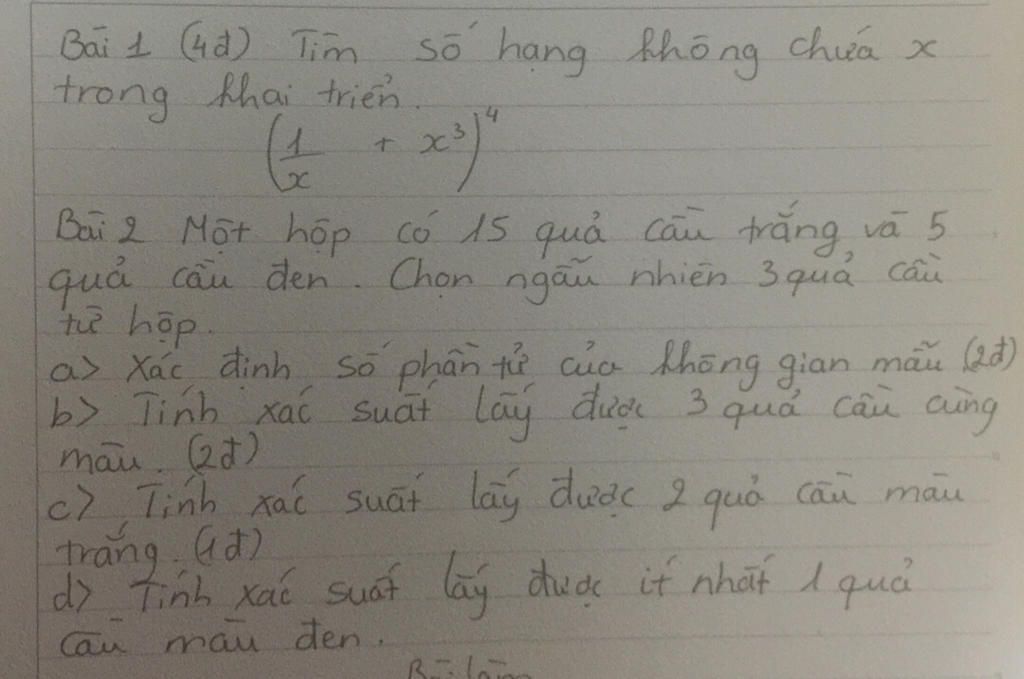 Bài 1 (4đ) Tìm số hạng không chứa x
trong khai triển.
(1/x + x³)⁴
Bài 2 Một hộp có 15 quả cầu trắng và 5
quả cầu đen. Chọn ngẫu nhiên 3 quả cầu
từ hộp.
a> Xác định số phần tử của không gian mẫu (2đ)
b> Tính xác suất lấy được 3 quả cầu cùng
màu. (2đ)
c> Tính xác suất lấy được 2 quả cầu màu
trắng. (1đ)
d> Tính xác suất lấy được ít nhất 1 quả
cầu màu đen.